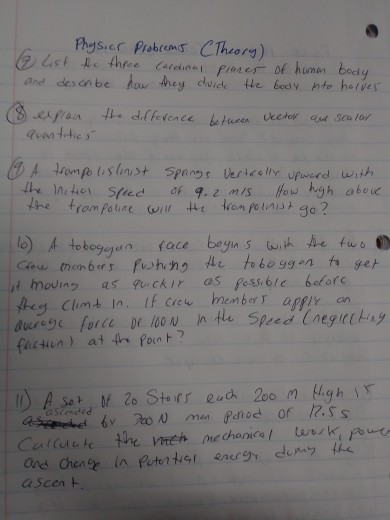 Physics Problems (Theory)
⑦ List the three Cardinal planes of human body
and describe how they divide the body into halves
⑧ explain the difference between vector and scalar
quantities
⑨ A trampolislinist springs vertically upward with
the initial speed of 9.2 m/s How high above
the trampoline will the trampolinist go?
10) A toboggan race begins with the two
Crew members Pushing the toboggan to get
it moving as quickly as possible before
they climb in. If crew members apply an
average force of 100 N in the Speed (neglecting
friction) at the point?
11) A set of 20 Stairs each 200 m High is
ascended by 700 N man period of 12.5 s
Calculate the mechanical work, power
and change in Potential energy during the
ascent.